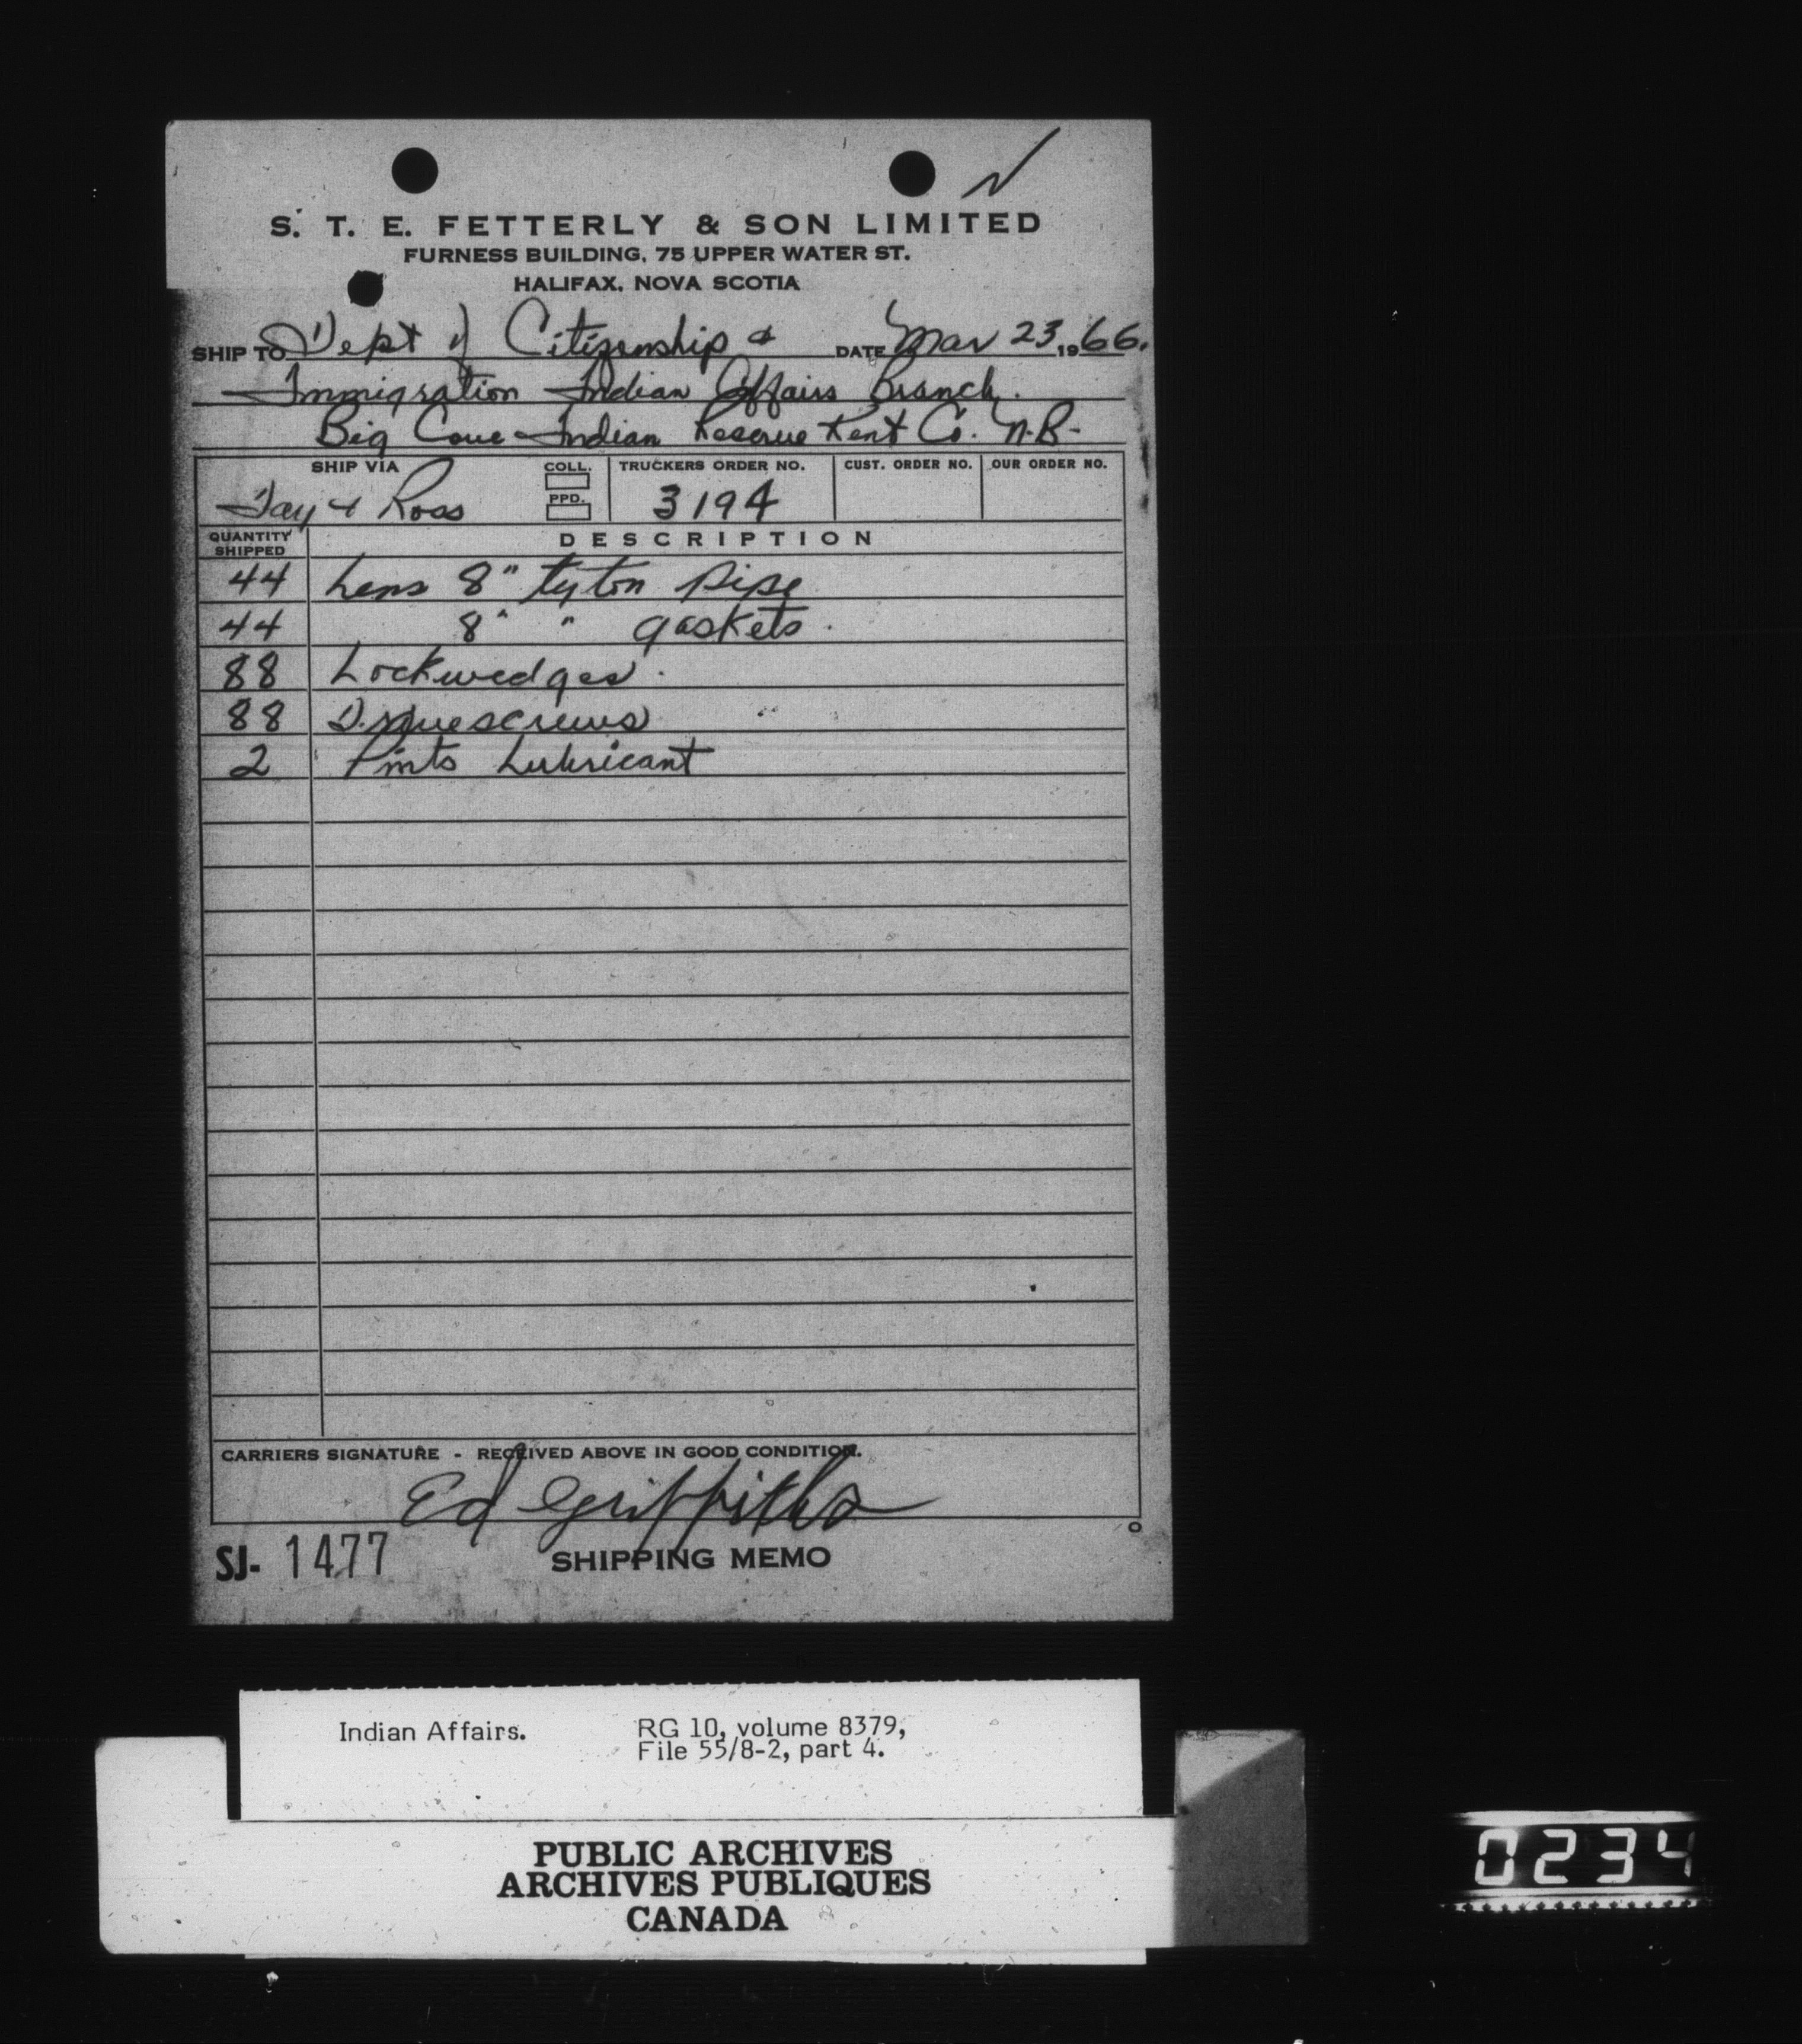 S. T. E. FETTERLY & SON LIMITED
FURNESS BUILDING, 75 UPPER WATER ST.
HALIFAX, NOVA SCOTIA
SHIP TO Dept of Citizenship & DATE Mar 23 1966.
Immigration Indian Affairs Branch.
Big Cove Indian Reserve Kent Co. N.B.
SHIP VIA COLL. TRUCKERS ORDER NO. CUST. ORDER NO. OUR ORDER NO.
Day & Ross PPD. 3194
QUANTITY SHIPPED DESCRIPTION
44 Lens 8" tyton pipe
44 8" " gaskets.
88 Lockwedges.
88
2 Pints Lubricant
CARRIERS SIGNATURE - RECEIVED ABOVE IN GOOD CONDITION.
Ed Griffiths
SJ- 1477 SHIPPING MEMO
Indian Affairs. RG 10, volume 8379,
File 55/8-2, part 4.
PUBLIC ARCHIVES
ARCHIVES PUBLIQUES
CANADA
0234